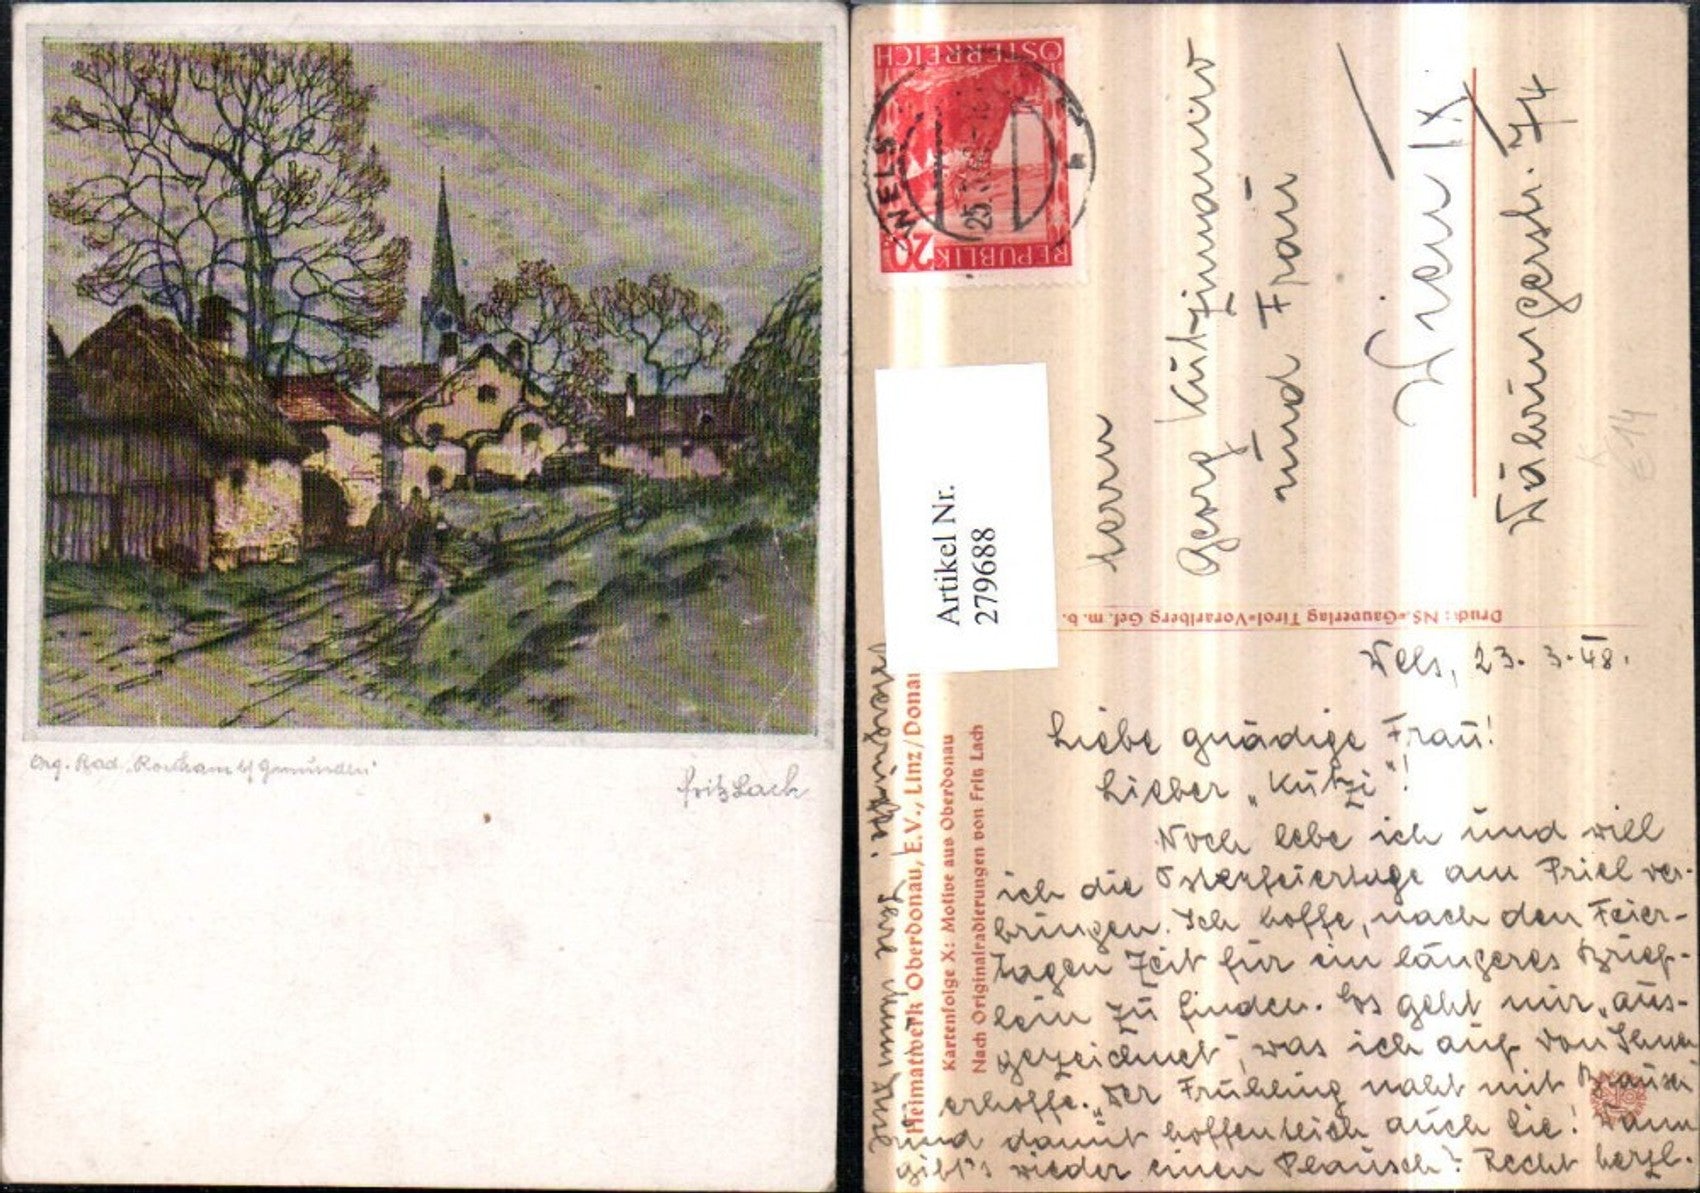 Org. Rad. "Roitham b/ Gmunden"
Fritz Lach
ÖSTERREICH
REPUBLIK
20
WELS
25.
Artikel Nr.
279688
Herrn
Georg Kützimanow
und Frau
Wien IX
Währingerstr. 74
K
E14
Druck: NS.-Gauverlag Tirol-Vorarlberg Ges. m. b.
Heimatwerk Oberdonau, E.V., Linz/Donau
Kartenfolge X: Motive aus Oberdonau
Nach Originalradierungen von Fritz Lach
Wels, 23. 3. 48.
Liebe gnädige Frau!
Lieber "Kützi"!
Noch lebe ich und will
ich die Osterfeiertage am Priel ver-
bringen. Ich hoffe, nach den Feier-
tagen Zeit für ein längeres Brief-
lein zu finden. Es geht mir "aus-
gezeichnet", was ich auf von Ihnen
erhoffe. "Der Frühling naht mit Brausen"
und damit hoffentlich auch Sie! Dann
gibt's wieder einen Plausch! Recht herzl.